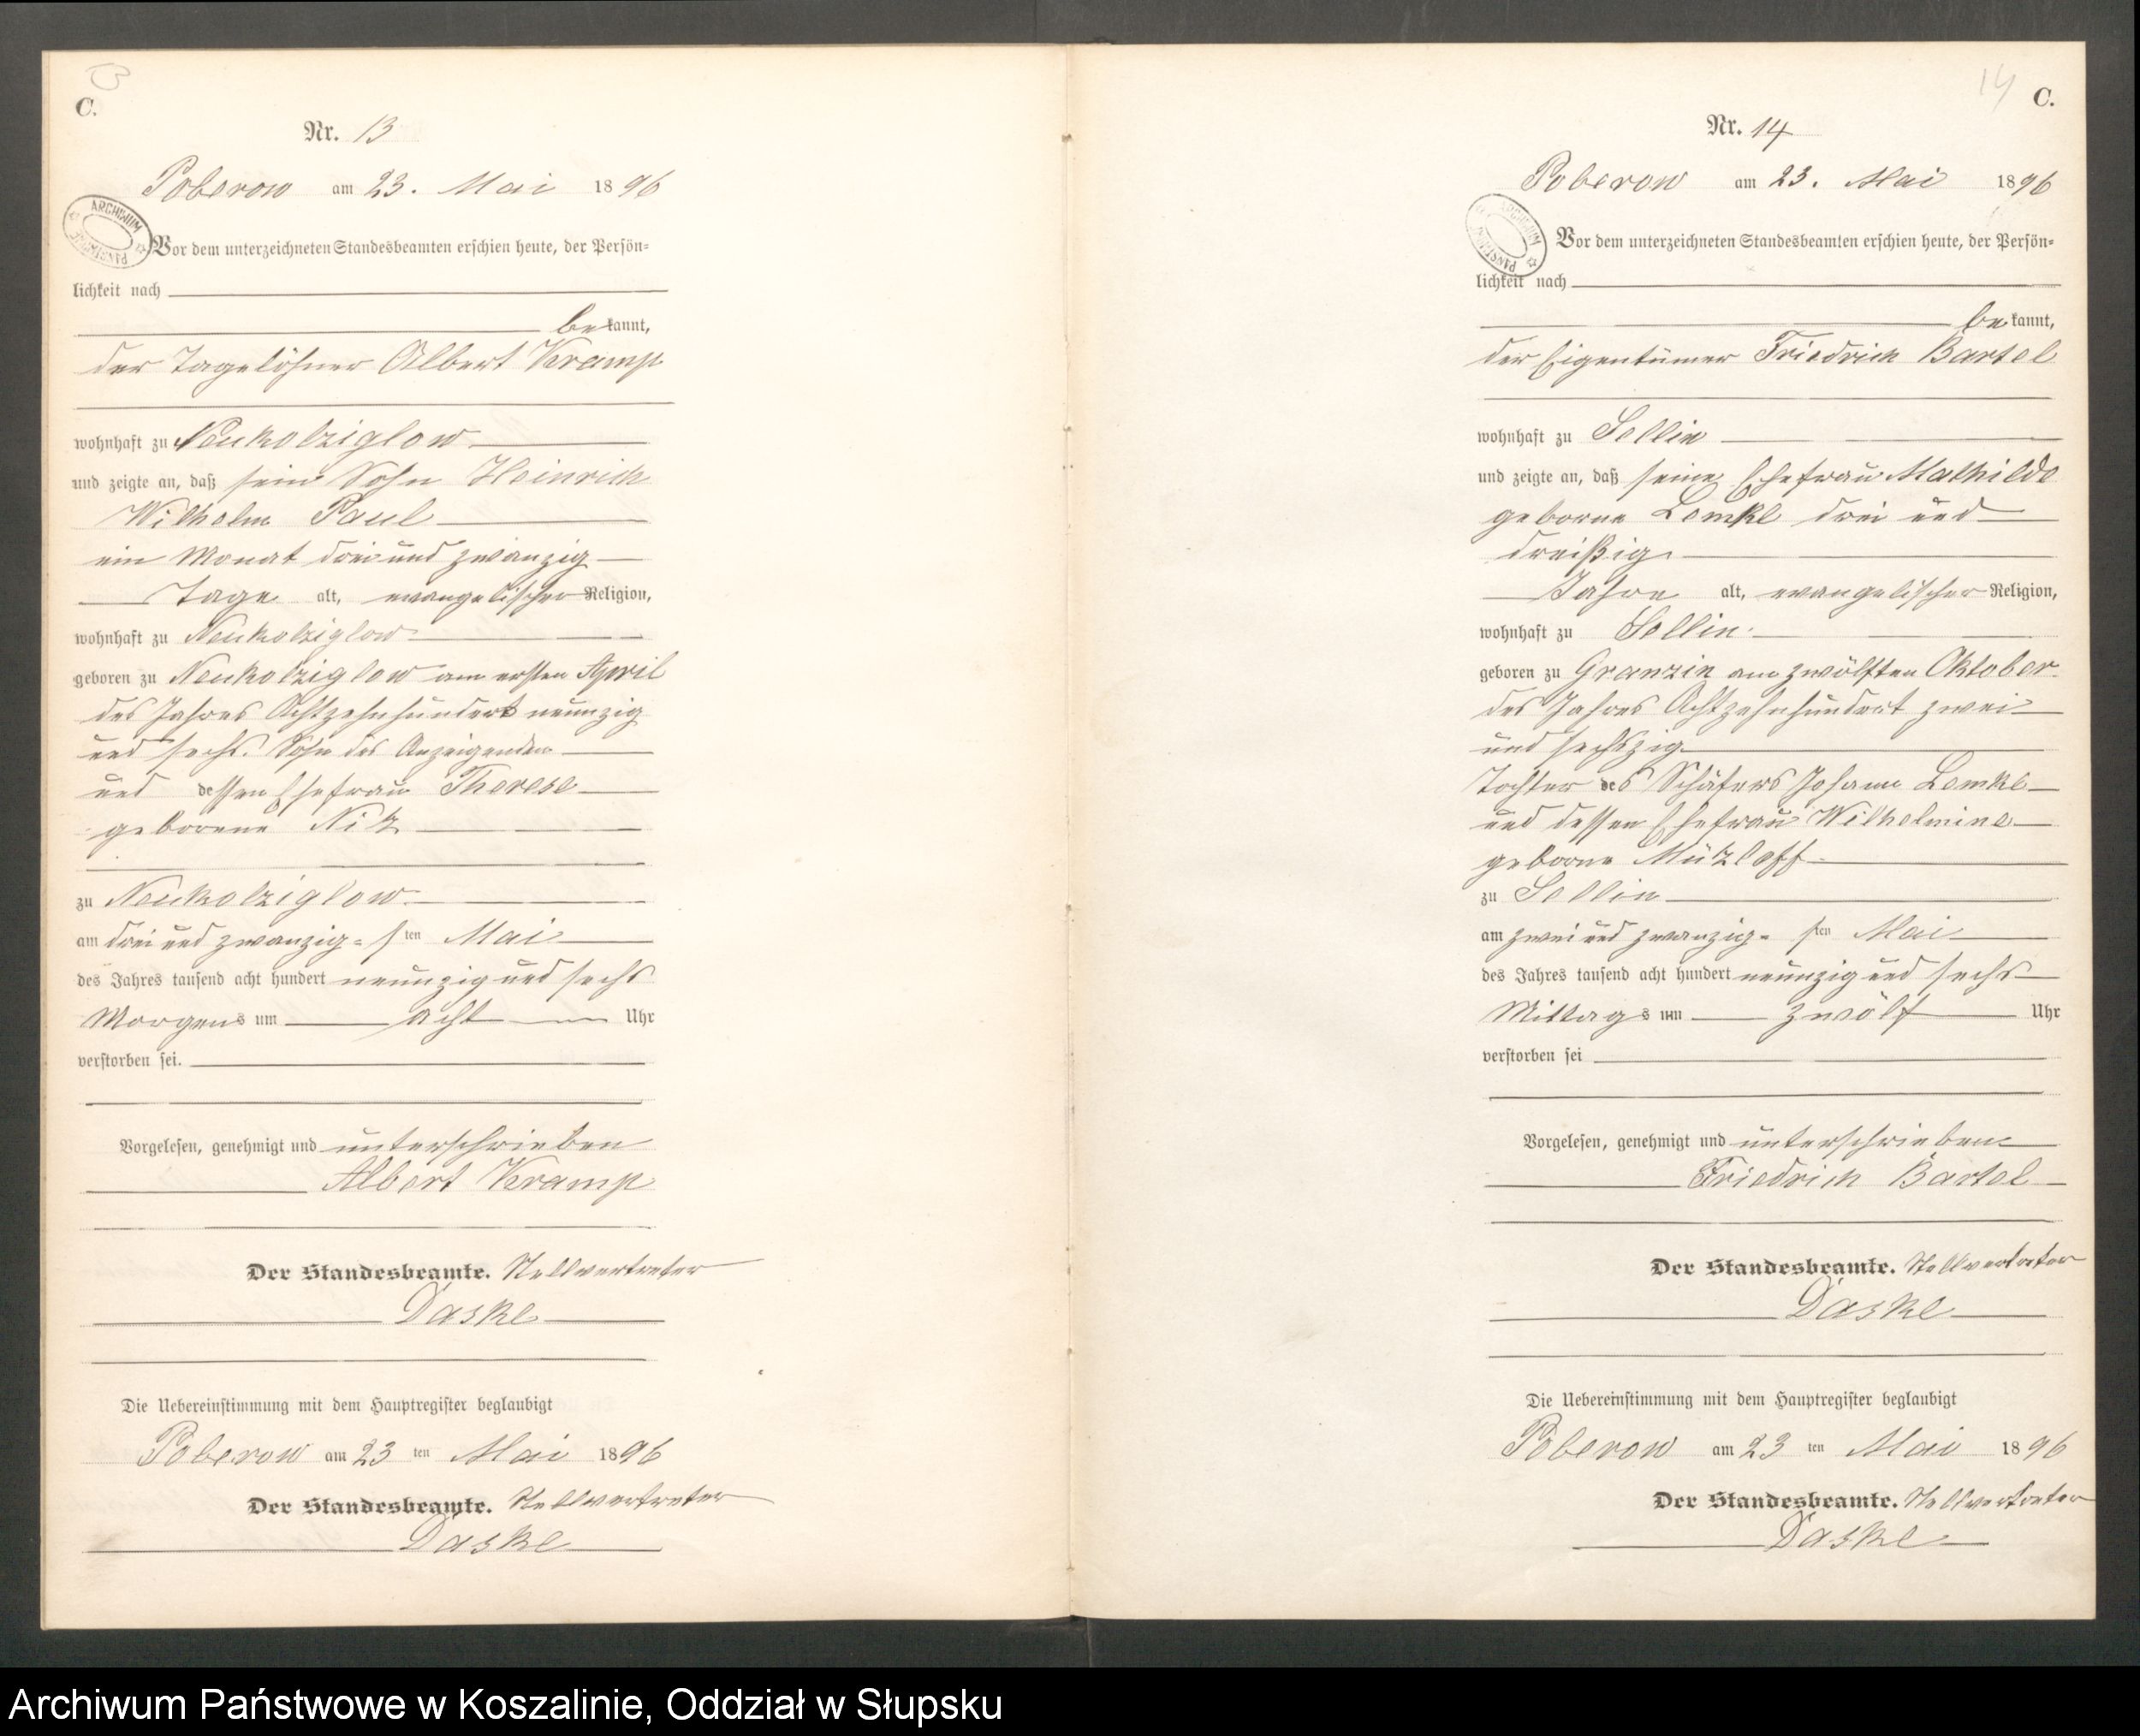 13
C.
Nr. 13
Poberow am 23. Mai 1896
ARCHIWUM PAŃSTWOWE
Vor dem unterzeichneten Standesbeamten erschien heute, der Persön=
lichkeit nach
bekannt,
der Tagelöhner Albert Kramp
wohnhaft zu Neukolziglow
und zeigte an, daß sein Sohn Heinrich
Wilhelm Paul
ein Monat drei und zwanzig
Tage alt, evangelischer Religion,
wohnhaft zu Neukolziglow
geboren zu Neukolziglow am ersten April
des Jahres Achtzehnhundert neunzig
und sechs. Sohn des Anzeigenden
und dessen Ehefrau Therese
geborene Nitz
zu Neukolziglow
am drei und zwanzig=sten Mai
des Jahres tausend acht hundert neunzig und sechs
Morgens um acht Uhr
verstorben sei.
Vorgelesen, genehmigt und unterschrieben
Albert Kramp
Der Standesbeamte. Stellvertreter
Daske
Die Uebereinstimmung mit dem Hauptregister beglaubigt
Poberow am 23 ten Mai 1896
Der Standesbeamte. Stellvertreter
Daske
14
C.
Nr. 14
Poberow am 23. Mai 1896
ARCHIWUM PAŃSTWOWE
Vor dem unterzeichneten Standesbeamten erschien heute, der Persön=
lichkeit nach
bekannt,
der Eigentümer Friedrich Bartel
wohnhaft zu Sellin
und zeigte an, daß seine Ehefrau Mathilde
geborne Lemke drei und
dreißig
Jahre alt, evangelischer Religion,
wohnhaft zu Sellin
geboren zu Granzin am zwölften Oktober
des Jahres Achtzehnhundert zwei
und sechszig
Tochter des Schäfers Johann Lemke
und dessen Ehefrau Wilhelmine
geborne Mützloff
zu Sellin
am zwei und zwanzig=sten Mai
des Jahres tausend acht hundert neunzig und sechs
Mittags um zwölf Uhr
verstorben sei
Vorgelesen, genehmigt und unterschrieben
Friedrich Bartel
Der Standesbeamte. Stellvertreter
Daske
Die Uebereinstimmung mit dem Hauptregister beglaubigt
Poberow am 23 ten Mai 1896
Der Standesbeamte. Stellvertreter
Daske
Archiwum Państwowe w Koszalinie, Oddział w Słupsku